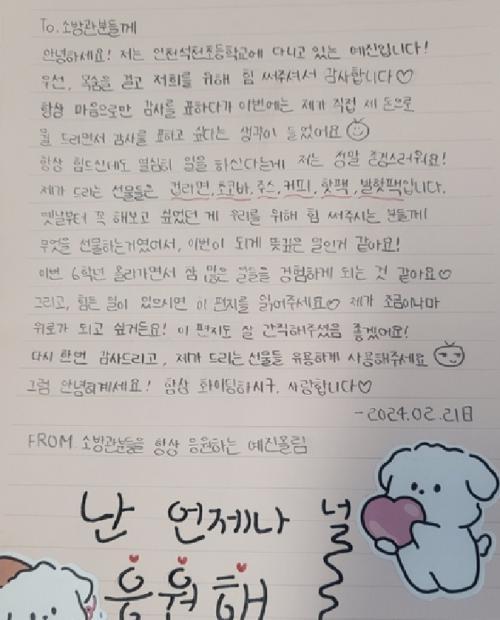 To. 소방관분들께
안녕하세요! 저는 인천석천초등학교에 다니고 있는 예진입니다!
우선, 목숨을 걸고 저희를 위해 힘 써주셔서 감사합니다♡
항상 마음으로만 감사를 표하다가 이번에는 제가 직접 제 돈으로
뭘 드리면서 감사를 표하고 싶다는 생각이 들었어요
항상 힘드신데도 열심히 일을 하신다는게 저는 정말 존경스러워요!
제가 드리는 선물들은 컵라면, 초코바, 주스, 커피, 핫팩, 발핫팩입니다.
옛날부터 꼭 해보고 싶었던 게 우리를 위해 힘 써주시는 분들께
무엇을 선물하는거였여서, 이번이 되게 뜻깊은 일인거 같아요!
이번 6학년 올라가면서 참 많은 일들을 경험하게 되는 것 같아요♡
그리고, 힘든 일이 있으시면 이 편지를 읽어주세요♡ 제가 조금이나마
위로가 되고 싶거든요! 이 편지도 잘 간직해주셨음 좋겠어요!
다시 한번 감사드리고, 제가 드리는 선물들 유용하게 사용해주세요
그럼 안녕히계세요! 항상 화이팅하시구, 사랑합니다♡
-2024.02.21日
FROM 소방관분들을 항상 응원하는 예진올림
난 언제나 널
응원해